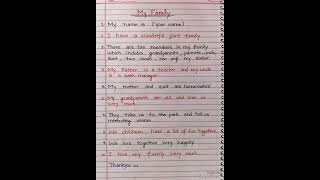 My Family
1. My name is (your name)
2. I have a wonderful joint family
3. There are ten members in my family
which includes grandparents, parents, uncle,
aunt, two cousin, me and my sister
4. My father is a teacher and my uncle
is a bank manager
5. My mother and aunt are homemaker
6. My grandparents are old and love us
very much.
7. They take us to the park and tell us
interesting stories
8. We children, have a lot of fun together.
9. We live together very happily.
10. I love my family very much.
Thankyou